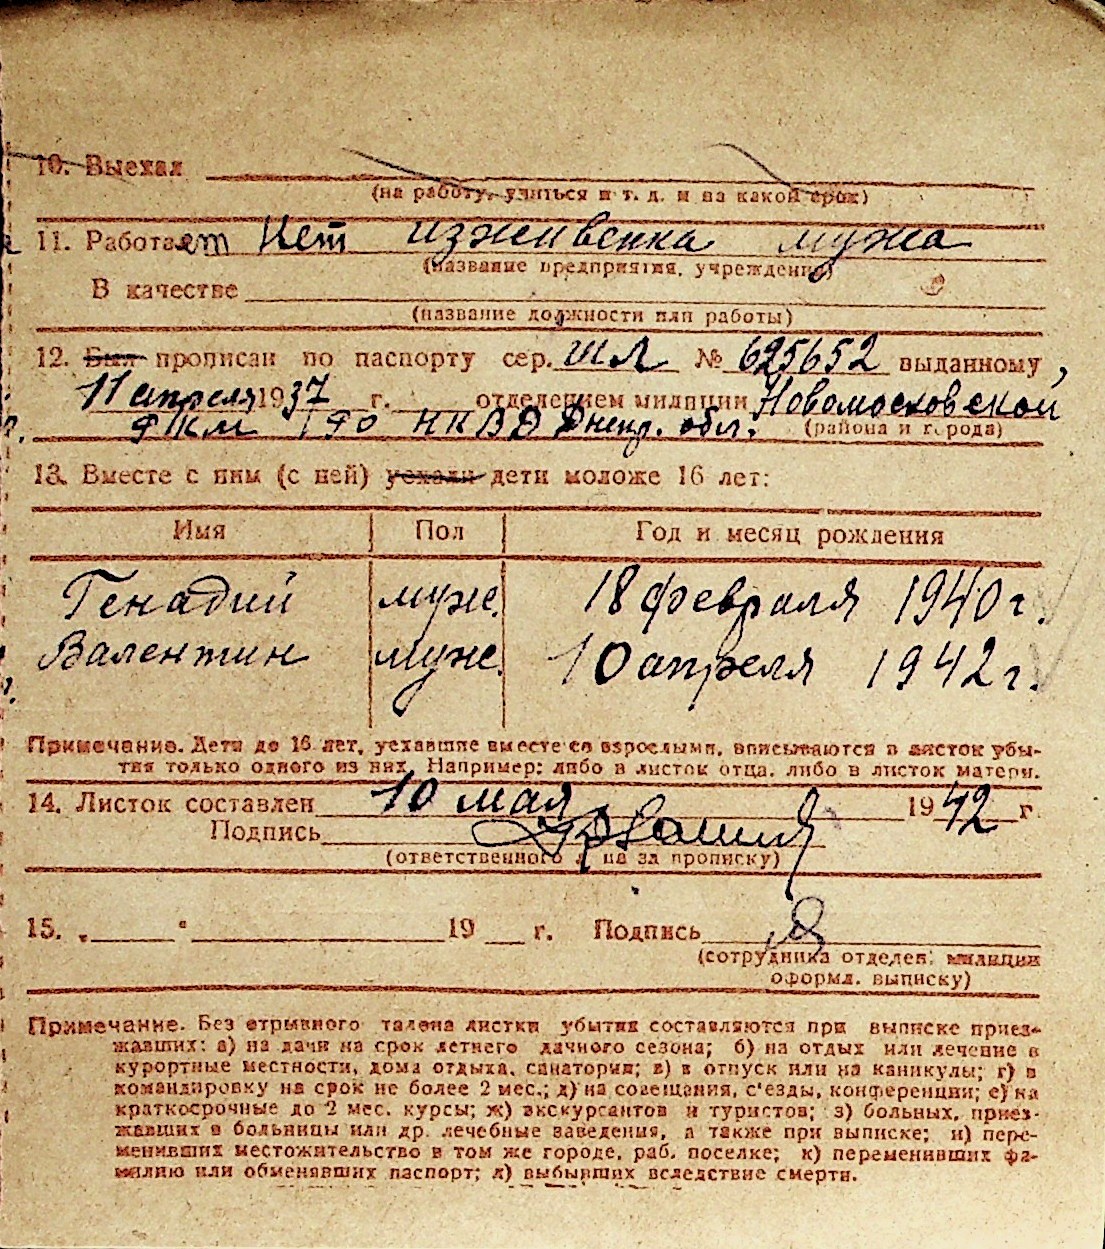 10. Выехал
(на работу, учиться и т. д. и на какой срок)
11. Работает Нет изживенка мужа
(название предприятия, учреждения)
В качестве
(название должности или работы)
12. Был прописан по паспорту сер. ШЛ № 625652 выданному,
11 апреля 1937 г. отделением милиции Новомосковской
РКМ УГО НКВД Днепр. обл. (района и города)
13. Вместе с ним (с ней) уехали дети моложе 16 лет:
Имя Пол Год и месяц рождения
Генадий муж. 18 февраля 1940 г.
Валентин муж. 10 апреля 1942 г.
Примечание. Дети до 16 лет, уехавшие вместе со взрослыми, вписываются в листок убы-
тия только одного из них. Например: либо в листок отца, либо в листок матери.
14. Листок составлен 10 мая 1942 г.
Подпись
(ответственного л на за прописку)
15. „ “ 19 г. Подпись
(сотрудника отделен. милиции
оформл. выписку)
Примечание. Без отрывного талона листки убытия составляются при выписке приез-
жавших: а) на дачи на срок летнего дачного сезона; б) на отдых или лечение в
курортные местности, дома отдыха, санатории; в) в отпуск или на каникулы; г) в
командировку на срок не более 2 мес.; д) на совещания, с'езды, конференции; е) на
краткосрочные до 2 мес. курсы; ж) экскурсантов и туристов; з) больных, приез-
жавших в больницы или др. лечебные заведения, а также при выписке; и) пере-
менивших местожительство в том же городе, раб. поселке; к) переменивших фа-
милию или обменявших паспорт; л) выбывших вследствие смерти.